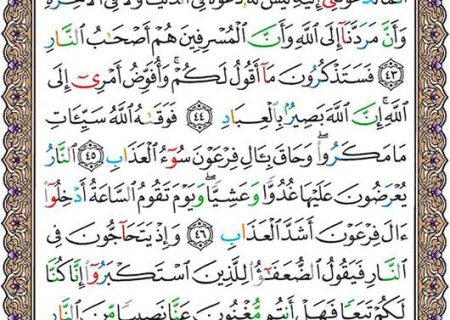 أَنَّمَا تَدْعُونَنِي إِلَيْهِ لَيْسَ لَهُۥ دَعْوَةٌ فِي ٱلدُّنْيَا وَلَا فِي ٱلْـَٔاخِرَةِ
وَأَنَّ مَرَدَّنَآ إِلَى ٱللَّهِ وَأَنَّ ٱلْمُسْرِفِينَ هُمْ أَصْحَٰبُ ٱلنَّارِ
٤٣ فَسَتَذْكُرُونَ مَآ أَقُولُ لَكُمْ ۚ وَأُفَوِّضُ أَمْرِىٓ إِلَى
ٱللَّهِ ۚ إِنَّ ٱللَّهَ بَصِيرٌۢ بِٱلْعِبَادِ ٤٤ فَوَقَىٰهُ ٱللَّهُ سَيِّـَٔاتِ
مَا مَكَرُوا۟ ۖ وَحَاقَ بِـَٔالِ فِرْعَوْنَ سُوٓءُ ٱلْعَذَابِ ٤٥ ٱلنَّارُ
يُعْرَضُونَ عَلَيْهَا غُدُوًّا وَعَشِيًّا ۖ وَيَوْمَ تَقُومُ ٱلسَّاعَةُ أَدْخِلُوٓا۟
ءَالَ فِرْعَوْنَ أَشَدَّ ٱلْعَذَابِ ٤٦ وَإِذْ يَتَحَآجُّونَ فِي
ٱلنَّارِ فَيَقُولُ ٱلضُّعَفَٰٓؤُا۟ لِلَّذِينَ ٱسْتَكْبَرُوٓا۟ إِنَّا كُنَّا
لَكُمْ تَبَعًا فَهَلْ أَنتُم مُّغْنُونَ عَنَّا نَصِيبًا مِّنَ ٱلنَّارِ